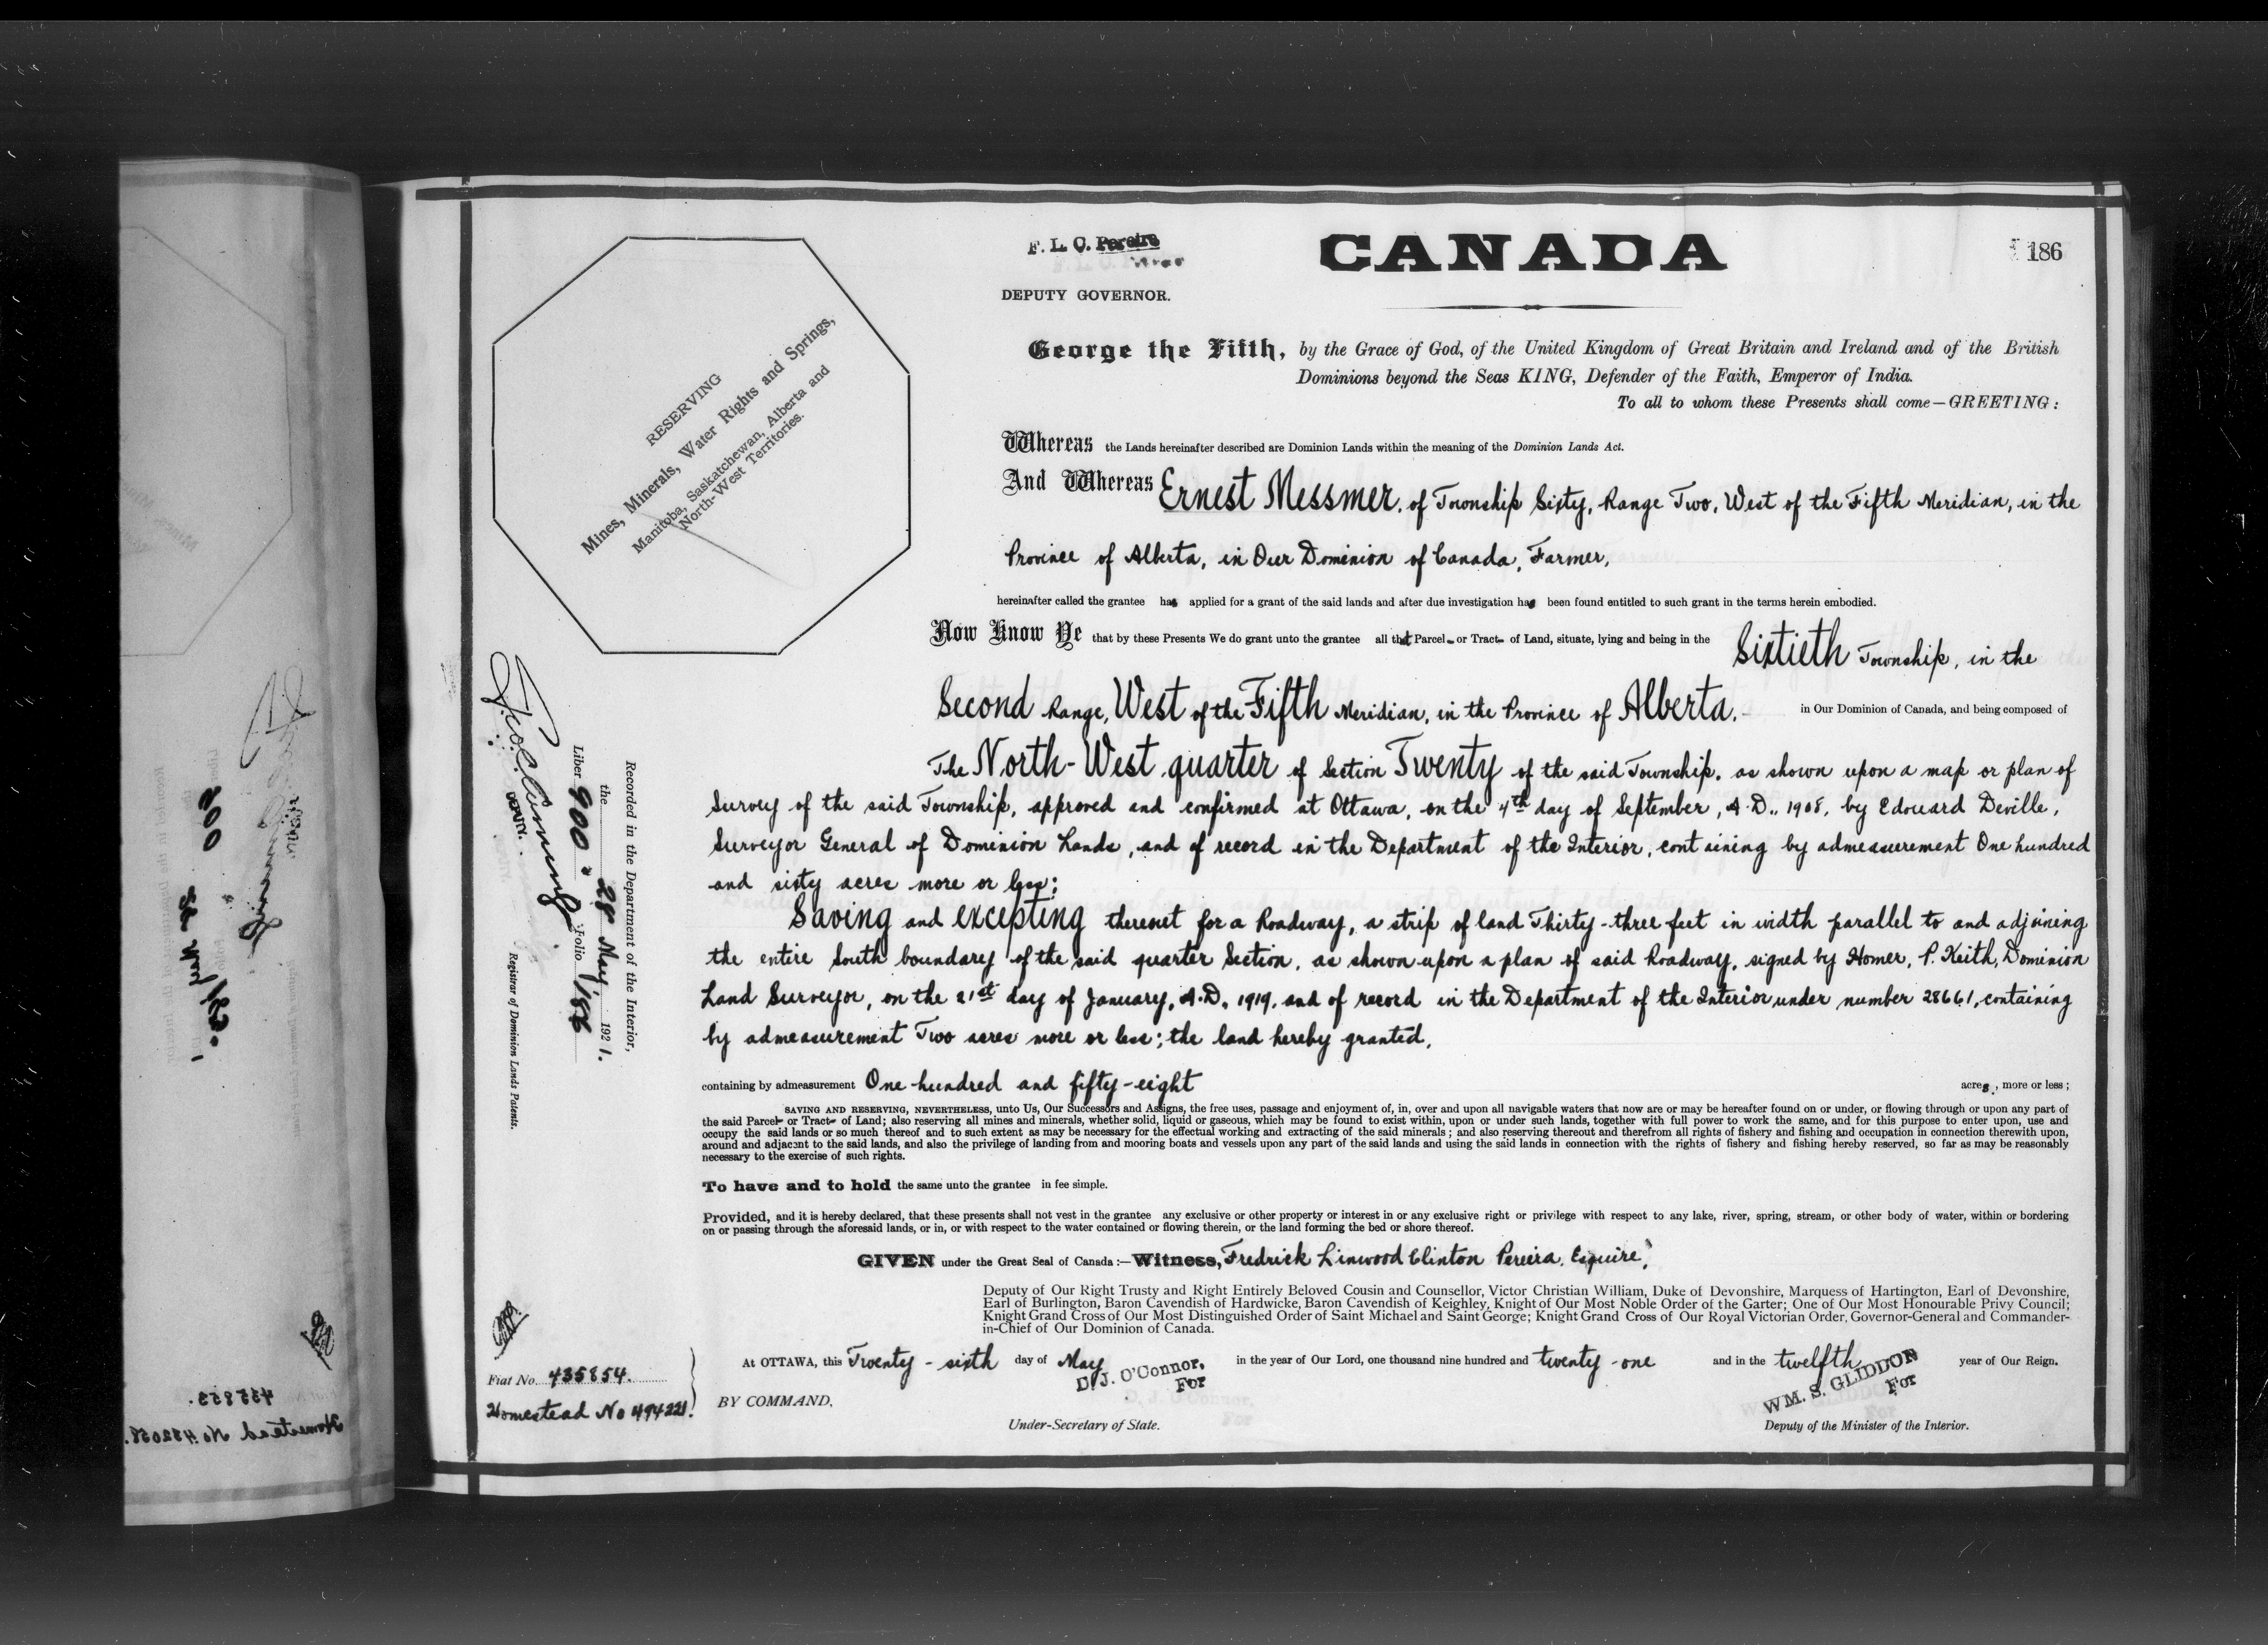 F. L. C. Pereira
DEPUTY GOVERNOR.
CANADA
186
RESERVING
Mines, Minerals, Water Rights and Springs,
Manitoba, Saskatchewan, Alberta and
North-West Territories.
George the Fifth, by the Grace of God, of the United Kingdom of Great Britain and Ireland and of the British
Dominions beyond the Seas KING, Defender of the Faith, Emperor of India.
To all to whom these Presents shall come—GREETING:
Whereas the Lands hereinafter described are Dominion Lands within the meaning of the Dominion Lands Act.
And Whereas Ernest Messmer, of Township Sixty, Range Two, West of the Fifth Meridian, in the
Province of Alberta, in Our Dominion of Canada, Farmer,
hereinafter called the grantee has applied for a grant of the said lands and after due investigation has been found entitled to such grant in the terms herein embodied.
Now Know Ye that by these Presents We do grant unto the grantee all that Parcel or Tract of Land, situate, lying and being in the Sixtieth Township, in the
Second Range, West of the Fifth Meridian, in the Province of Alberta, in Our Dominion of Canada, and being composed of
The North-West quarter of Section Twenty of the said Township, as shown upon a map or plan of
Survey of the said Township, approved and confirmed at Ottawa, on the 4th day of September, A.D., 1908, by Edouard Deville,
Surveyor General of Dominion Lands, and of record in the Department of the Interior, containing by admeasurement One hundred
and sixty acres more or less;
Saving and excepting thereout for a Roadway, a strip of land Thirty-three feet in width parallel to and adjoining
the entire South boundary of the said quarter Section, as shown upon a plan of said Roadway, signed by Homer, P. Keith, Dominion
Land Surveyor, on the 21st day of January, A.D., 1919, and of record in the Department of the Interior under number 28661, containing
by admeasurement Two acres more or less; the land hereby granted,
containing by admeasurement One hundred and fifty-eight acres, more or less;
SAVING AND RESERVING, NEVERTHELESS, unto Us, Our Successors and Assigns, the free uses, passage and enjoyment of, in, over and upon all navigable waters that now are or may be hereafter found on or under, or flowing through or upon any part of
the said Parcel or Tract of Land; also reserving all mines and minerals, whether solid, liquid or gaseous, which may be found to exist within, upon or under such lands, together with full power to work the same, and for this purpose to enter upon, use and
occupy the said lands or so much thereof and to such extent as may be necessary for the effectual working and extracting of the said minerals; and also reserving thereout and therefrom all rights of fishery and fishing and occupation in connection therewith upon,
around and adjacent to the said lands, and also the privilege of landing from and mooring boats and vessels upon any part of the said lands and using the said lands in connection with the rights of fishery and fishing hereby reserved, so far as may be reasonably
necessary to the exercise of such rights.
To have and to hold the same unto the grantee in fee simple.
Provided, and it is hereby declared, that these presents shall not vest in the grantee any exclusive or other property or interest in or any exclusive right or privilege with respect to any lake, river, spring, stream, or other body of water, within or bordering
on or passing through the aforesaid lands, or in, or with respect to the water contained or flowing therein, or the land forming the bed or shore thereof.
GIVEN under the Great Seal of Canada:—Witness, Fredrick Linwood Clinton Pereira, Esquire,
Deputy of Our Right Trusty and Right Entirely Beloved Cousin and Counsellor, Victor Christian William, Duke of Devonshire, Marquess of Hartington, Earl of Devonshire,
Earl of Burlington, Baron Cavendish of Hardwicke, Baron Cavendish of Keighley, Knight of Our Most Noble Order of the Garter; One of Our Most Honourable Privy Council;
Knight Grand Cross of Our Most Distinguished Order of Saint Michael and Saint George; Knight Grand Cross of Our Royal Victorian Order, Governor-General and Commander-
in-Chief of Our Dominion of Canada.
At OTTAWA, this Twenty-sixth day of May in the year of Our Lord, one thousand nine hundred and twenty-one and in the twelfth year of Our Reign.
BY COMMAND,
D. J. O'Connor,
For
Under-Secretary of State.
WM. S. GLIDDON
For
Deputy of the Minister of the Interior.
Recorded in the Department of the Interior,
the 28 May 1921.
Liber 900 Folio 186
DEPUTY.
Registrar of Dominion Lands Patents.
Fiat No. 435854.
Homestead No 494221.
435853.
Homestead No. 432058.